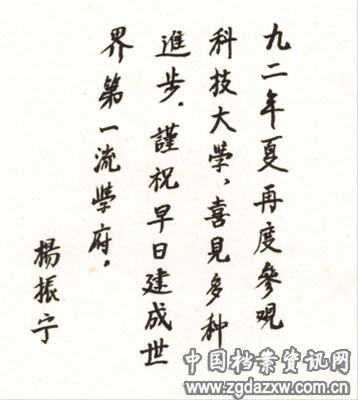 九二年夏再度參观
科技大學、喜見多种
進步．謹祝早日建成世
界第一流學府．
楊振宁
中国档案资讯网
www.zgdazxw.com.cn